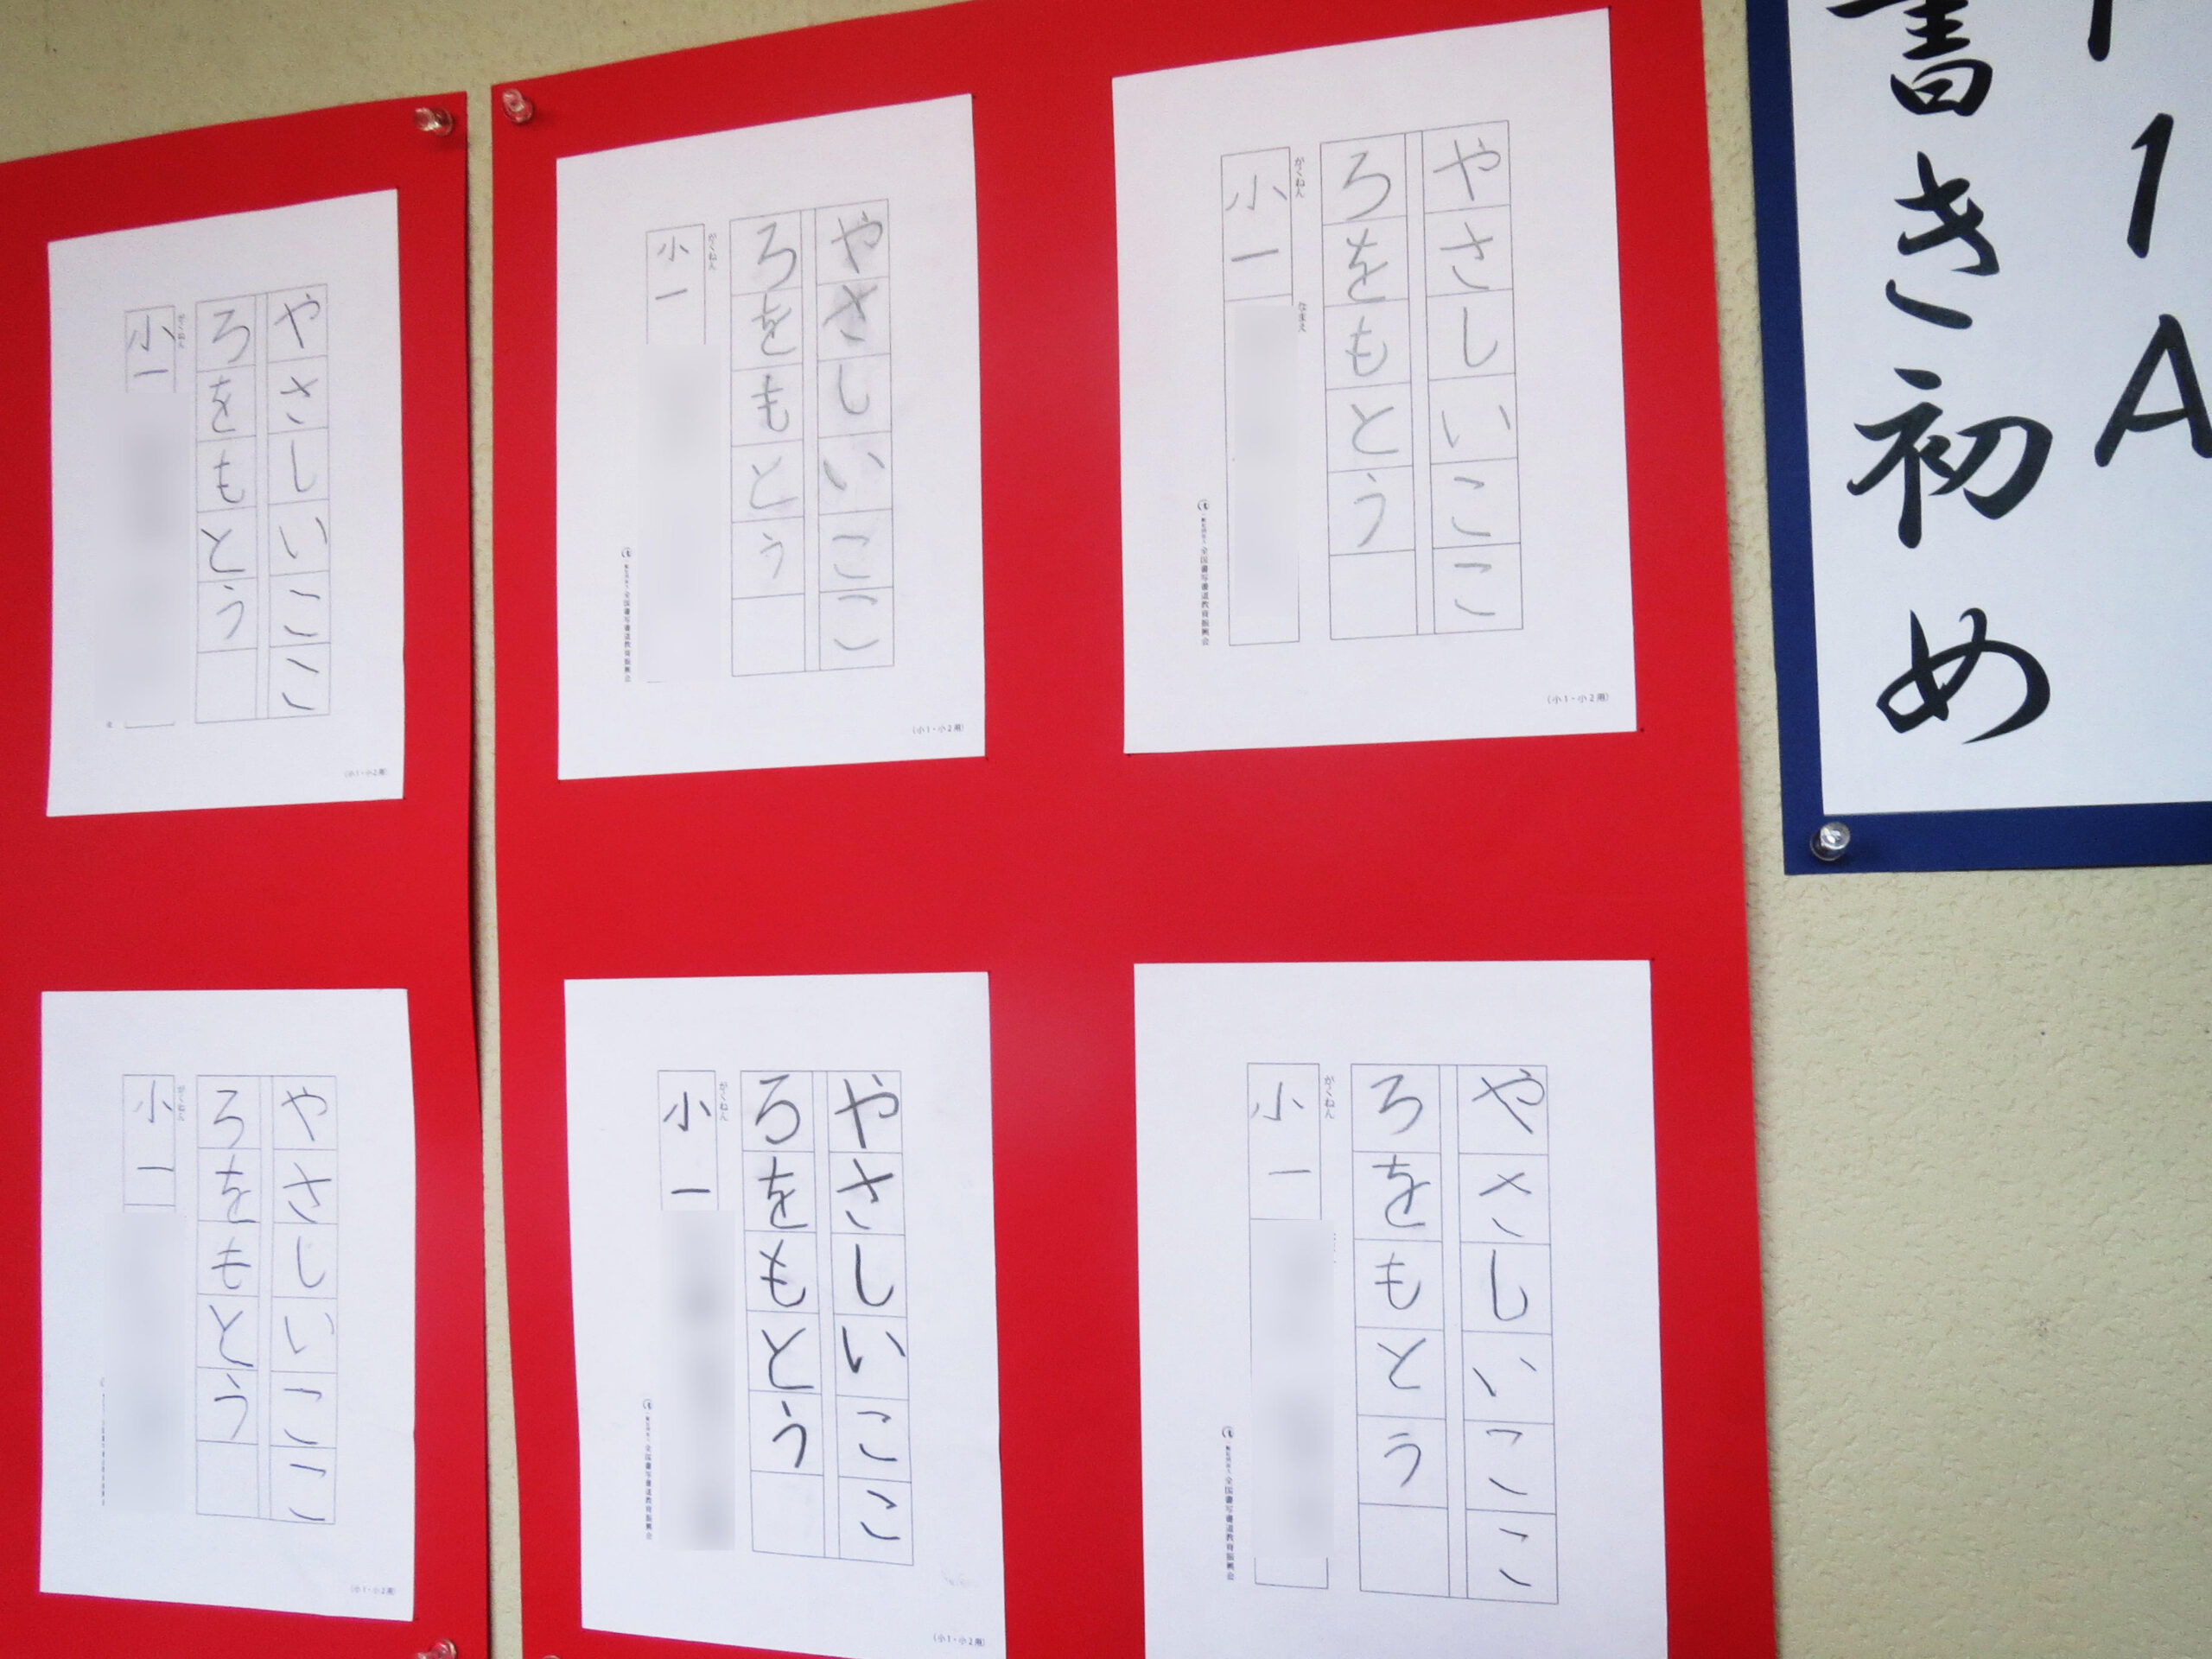 1A
書き初め
やさしいここ
ろをもとう
がくねん
小一
なまえ
全国書写書道教育振興会
(小1・小2用)
やさしいここ
ろをもとう
がくねん
小一
全国書写書道教育振興会
(小1・小2用)
やさしいここ
ろをもとう
がくねん
小一
(小1・小2用)
やさしいここ
ろをもとう
がくねん
小一
全国書写書道教育振興会
やさしいここ
ろをもとう
がくねん
小一
全国書写書道教育振興会
(小1・小2用)
やさしいここ
ろをもとう
がくねん
小一
(小1・小2用)